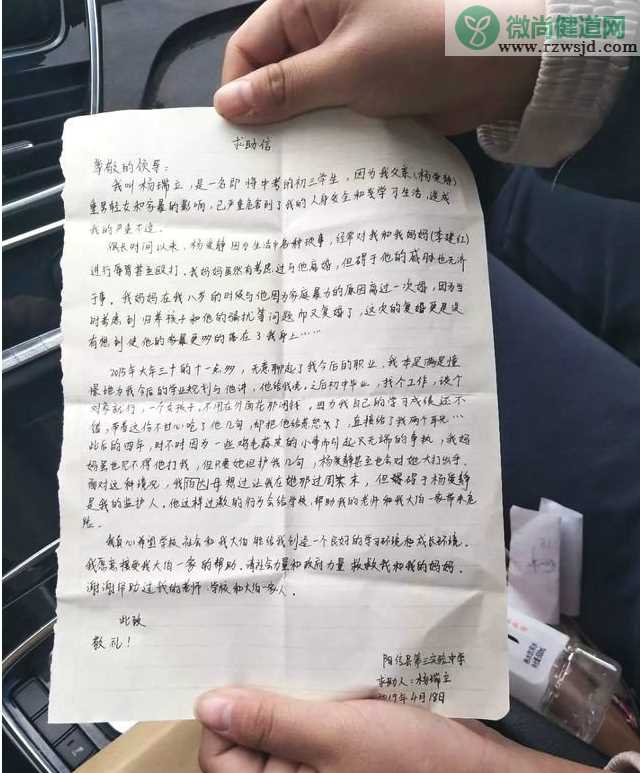 微尚健道网
www.rzwsjd.com
求助信
尊敬的领导:
我叫杨瑞立,是一名即将中考的初三学生,因为我父亲(杨爱静)
重男轻女和家暴的影响,已严重危害到了我的人身安全和我学习生活,造成
我的严重不适。
很长时间以来,杨爱静因为生活中各种琐事,经常对我和我妈妈(李建红)
进行辱骂甚至殴打,我妈妈虽然有考虑过与他离婚,但碍于他的威胁也无济
于事。我妈妈在我八岁的时候与他因为家庭暴力的原因离过一次婚,因为当
时考虑到归养孩子和他的骚扰等问题而又复婚了,这次的复婚更是没
有想到使他的家暴更多的落在了我身上……
2015年大年三十的十一点多,无意聊起了我今后的职业,我本是满是憧
憬地为我今后的学业规划与他讲,他给我说,之后初中毕业,找个工作,谈个
对象就行,一个女孩子,不用在外面花那闲钱,因为我自己的学习成绩还不
错,带着这份不甘心吃了他几句,却把他给惹怒了,直接给了我两个耳光…
此后的四年,时不时因为一些鸡毛蒜皮的小事而引起天无端的争执,我妈
妈虽也见不得他打我,但只要她但护我几句,杨爱静甚至也会对她大打出手。
面对这种境况,我大伯母想过让我在她那过周末,但碍于杨爱静
是我的监护人,他这样过激的行为会给学校、帮助我的老师和我大伯一家带来危
险。
我真心希望学校、社会和我大伯能给我创造一个良好的学习环境和成长环境。
我愿意接受我大伯一家的帮助。请社会力量和政府力量救救我和我的妈妈。
谢谢帮助过我的老师、学校和大伯一家人。
此致
敬礼!
阳信县第三实验中学
求助人:杨瑞立
2019年4月18日